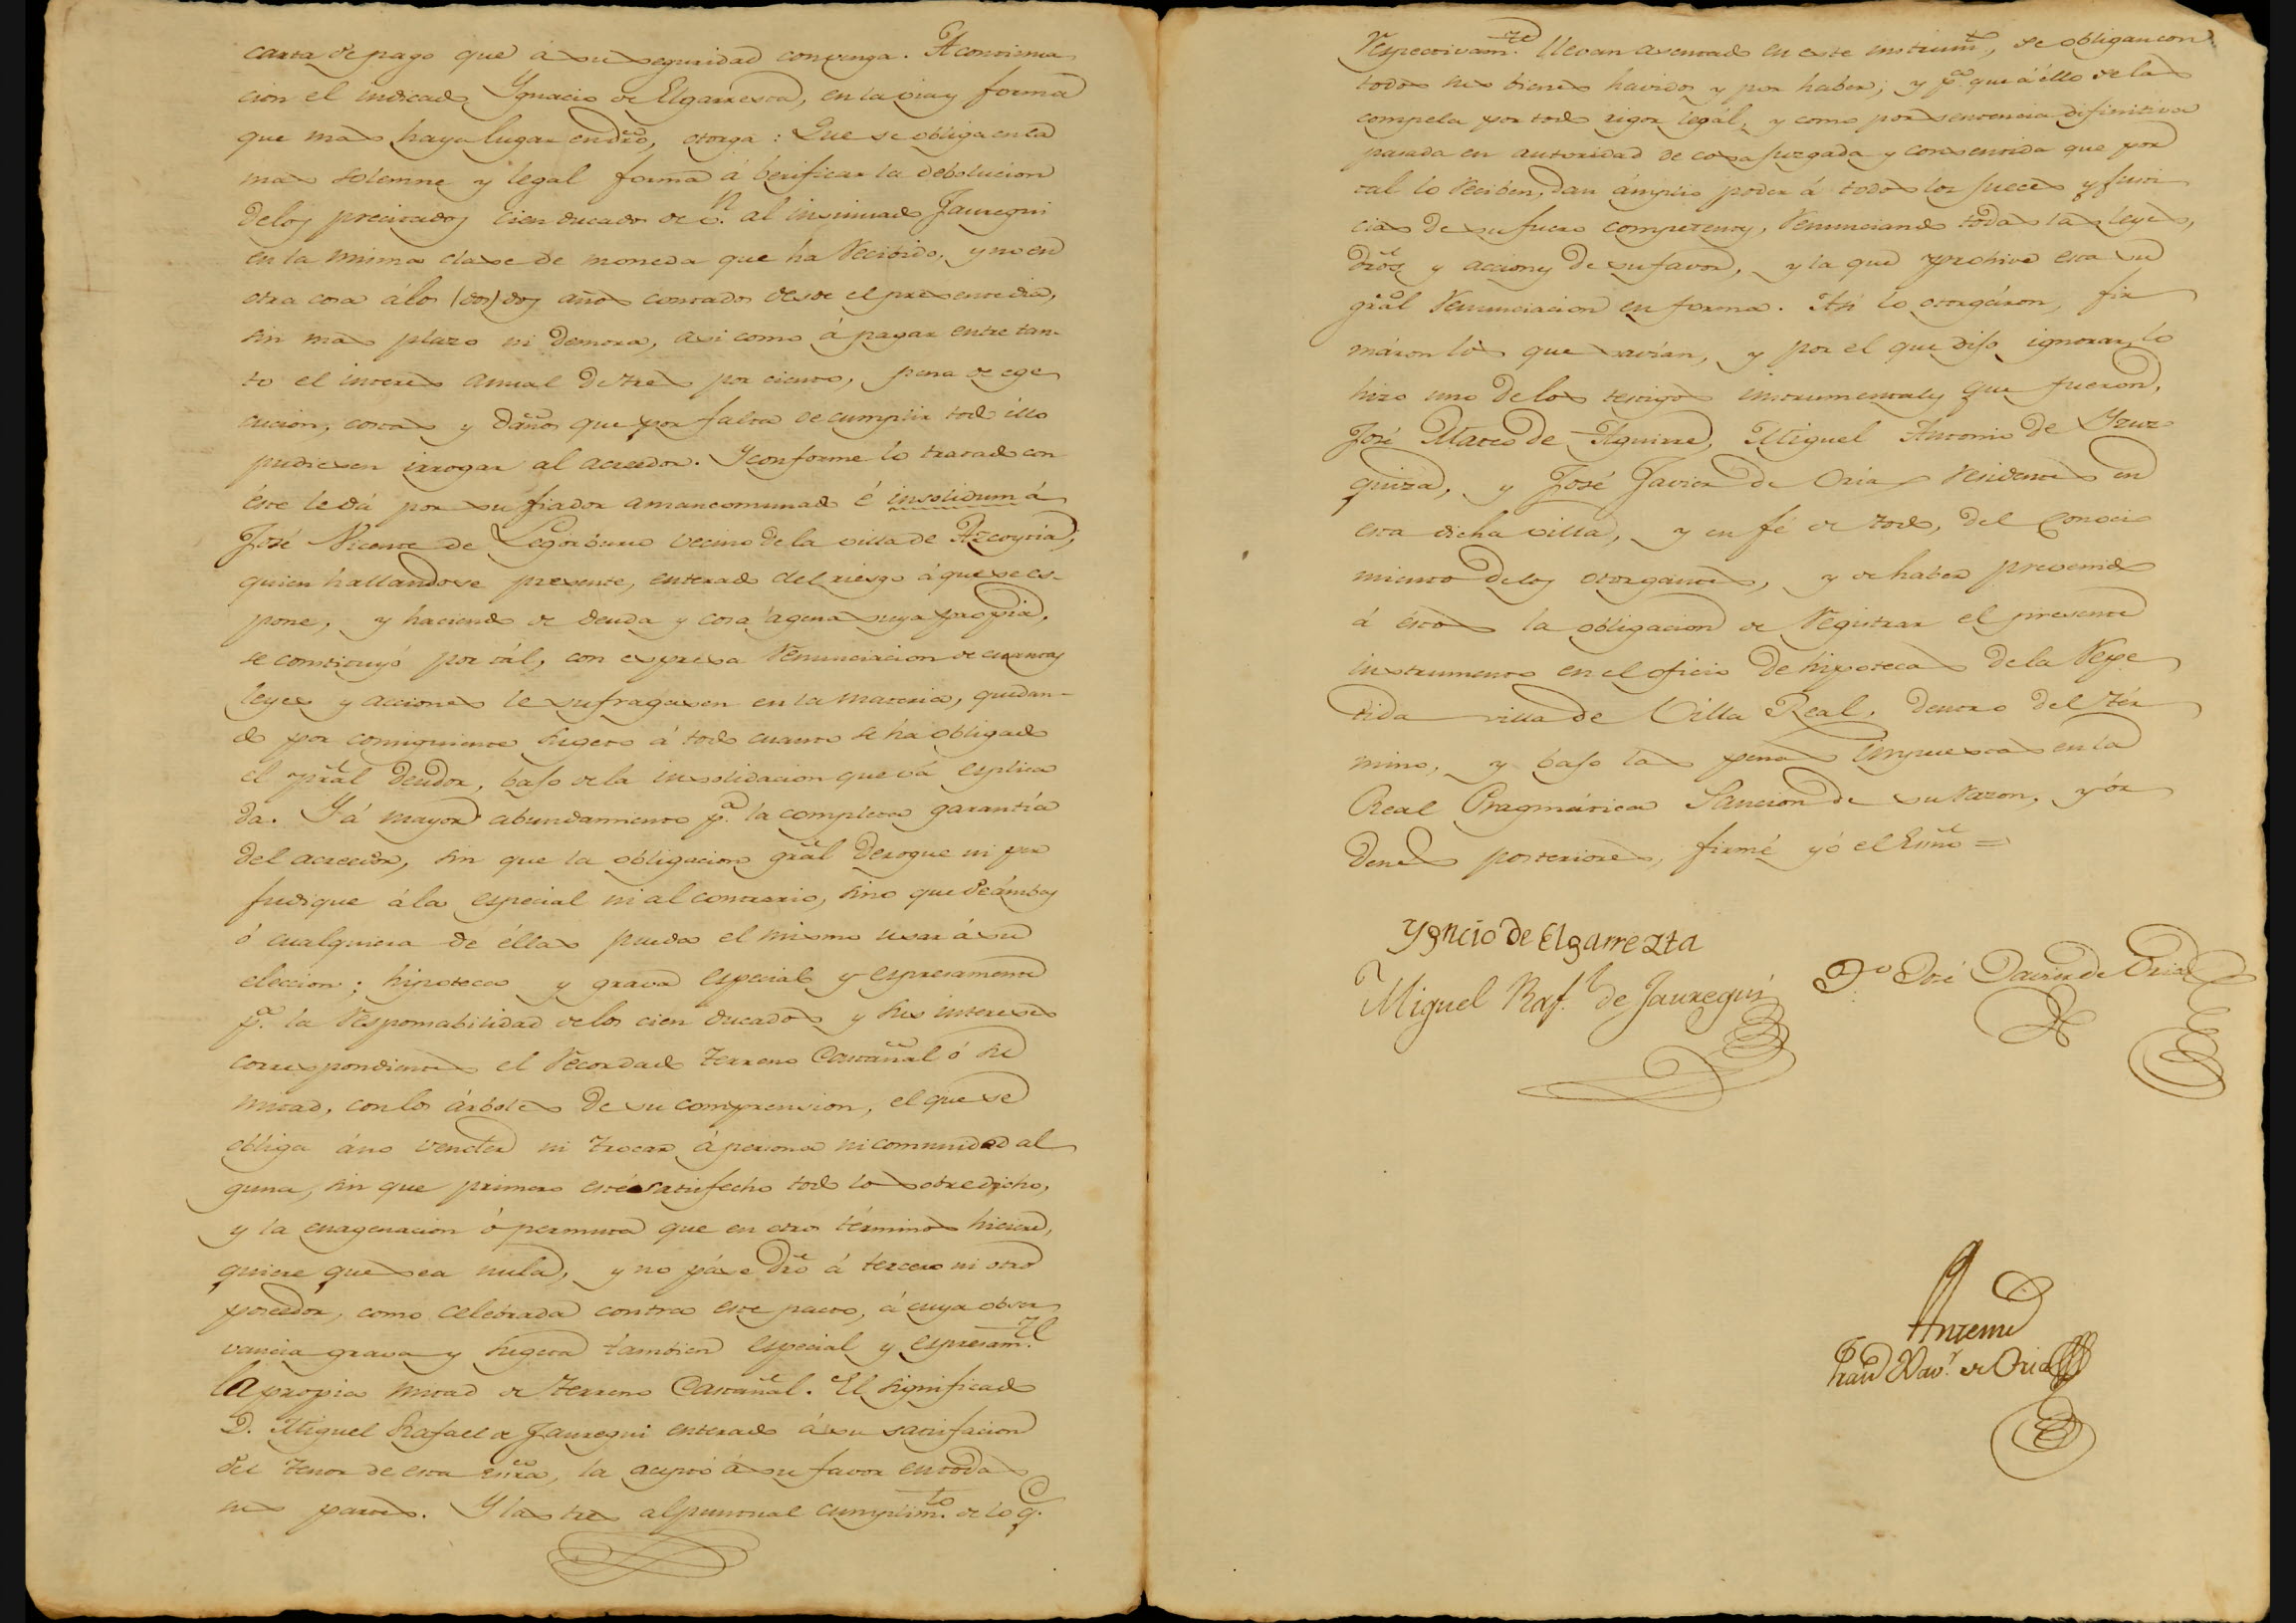 carta de pago que á su seguridad convenga. A continua
cion el indicado Ygnacio de Elgarresta, en la via y forma
que mas haya lugar en dro, otorga: Que se obliga en la
mas solemne y legal forma á berificar la debolucion
de los precitados cien ducados de v.n al insinuado Jauregui
en la misma clase de moneda que ha recibido, y no en
otra cosa á los (dos) dos años contados desde el presente dia,
sin mas plazo ni demora, asi como á pagar entre tan-
to el interes anual de tres por ciento, pena de ege
cucion, costas y daños que por falta de cumplir todo éllo
pudiesen irrogar al acreedor. Y conforme lo tratado con
éste le dá por su fiador amancomunado é insolidum á
José Vicente de Legorburu vecino de la villa de Azcoytia,
quien hallandose presente, enterado del riesgo á que se es-
pone, y haciendo de deuda y cosa agena suya propia,
se constituyó por tál, con expresa renunciacion de cuantas
leyes y acciones le sufragasen en la materia, quedan-
do por consiguiente sugeto á todo cuanto se ha obligado
el pral deudor, bajo de la insolidacion que vá esplica
da. Y á mayor abundamiento p.a la completa garantía
del acreedor, sin que la obligacion gral derogue ni per
judique á la especial ni al contrario, sino que de ámbas
ó cualquiera de éllas pueda el mismo usar á su
eleccion; hipoteca y grava especial y espresamente
p.a la responsabilidad de los cien ducados y sus intereses
correspondientes el recordado terreno Castañal ó su
mitad, con los árboles de su comprension, el que se
obliga á no vender ni trocar á persona ni comunidad al
guna, sin que primero esté satisfecho todo lo sobredicho,
y la enagenacion ó permuta que en otros términos hiciere,
quiere que sea nula, y no páse dro á tercero ni otro
poseedor, como celebrada contra este pacto, á cuya obser
vancia grava y sugeta tambien especial y espresam.te
la propia mitad de terreno Castañal. El significado
D. Miguel Rafael de Jauregui enterado á su satisfacion
del tenor de esta esrra, la aceptó á su favor en todas
sus partes. Y las tres al puntual cumplim.to de lo q.e
respectivam.te llevan asentado en este instrum.to, se obligan con
todos sus bienes havidos y por haber; y p.a que á éllo se las
compela por todo rigor legál, y como por sentencia difinitiva
pasada en autoridad de cosa juzgada y consentida que por
tal lo reciben, dan ámplio poder á todos los jueces y justi
cias de su fuero competentes, renunciando todas las leyes,
dros y acciones de su favor, y la que prohive esta su
gral renunciacion en forma. Asi lo otorgáron, fir
máron los que savian, y por el que dijo ignorar, lo
hizo uno de los testigos instrumentales que fueron,
José Mateo de Aguirre, Miguel Antonio de Yruz-
quiza, y José Javier de Oria residentes en
esta dicha villa, y en fé de todo, del conoci
miento de los otorgantes, y de haber prevenido
á éstos la obligacion de registrar el presente
instrumento en el oficio de hipotecas de la repe
tida villa de Villa Real, dentro del tér
mino, y bajo las penas impuestas en la
Real Pragmática Sancion de su razon, y ór
denes posteriores, firmé yó el Esno =
Ygncio de Elgarrezta
Miguel Raf.l de Jauregui
T.o José Javier de Oria
Antemi
Fran.co Xav.r de Oria